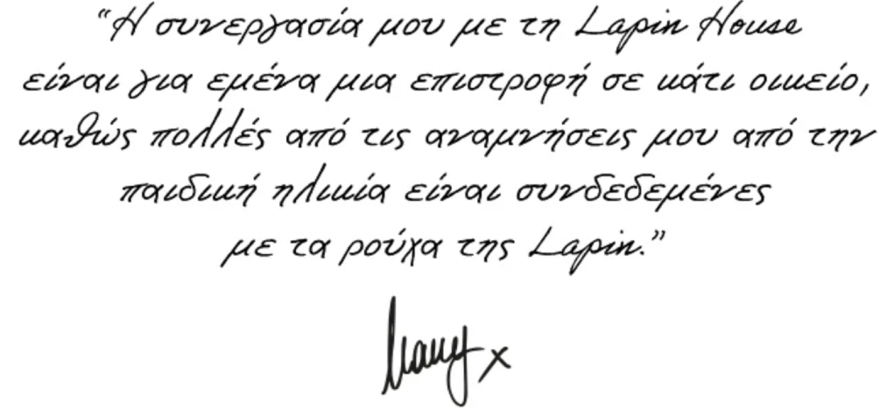 “Η συνεργασία μου με τη Lapin House
είναι για εμένα μια επιστροφή σε κάτι οικείο,
καθώς πολλές από τις αναμνήσεις μου από την
παιδική ηλικία είναι συνδεδεμένες
με τα ρούχα της Lapin.”